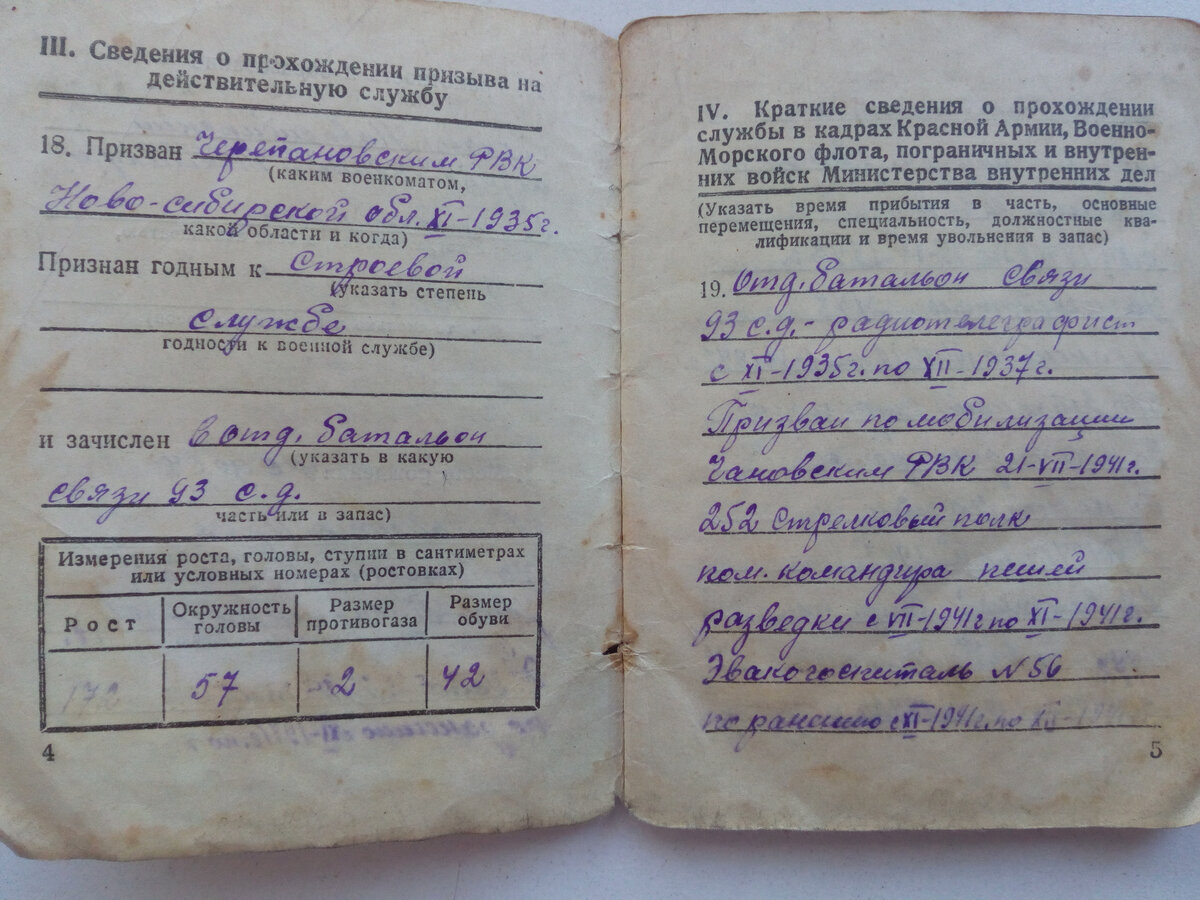 III. Сведения о прохождении призыва на
действительную службу
18. Призван Черепановским РВК
(каким военкоматом,
Ново-сибирской обл. XI-1935г.
какой области и когда)
Признан годным к строевой
(указать степень
службе
годности к военной службе)
и зачислен в отд. батальон
(указать в какую
связи 93 с.д.
часть или в запас)
Измерения роста, головы, ступни в сантиметрах
или условных номерах (ростовках)
Рост Окружность головы Размер противогаза Размер обуви
172 57 2 42
4
IV. Краткие сведения о прохождении
службы в кадрах Красной Армии, Военно-
Морского флота, пограничных и внутрен-
них войск Министерства внутренних дел
(Указать время прибытия в часть, основные
перемещения, специальность, должностные ква-
лификации и время увольнения в запас)
19. Отд. батальон связи
93 с.д. - радиотелеграфист
с XI-1935г. по XII-1937г.
Призван по мобилизации
Чановским РВК 21-VII-1941г.
252 стрелковый полк
пом. командира пешей
разведки с VII-1941г по XI-1941г.
Эвакогоспиталь N 56
по ранению с XI-1941г. по XII-194
5